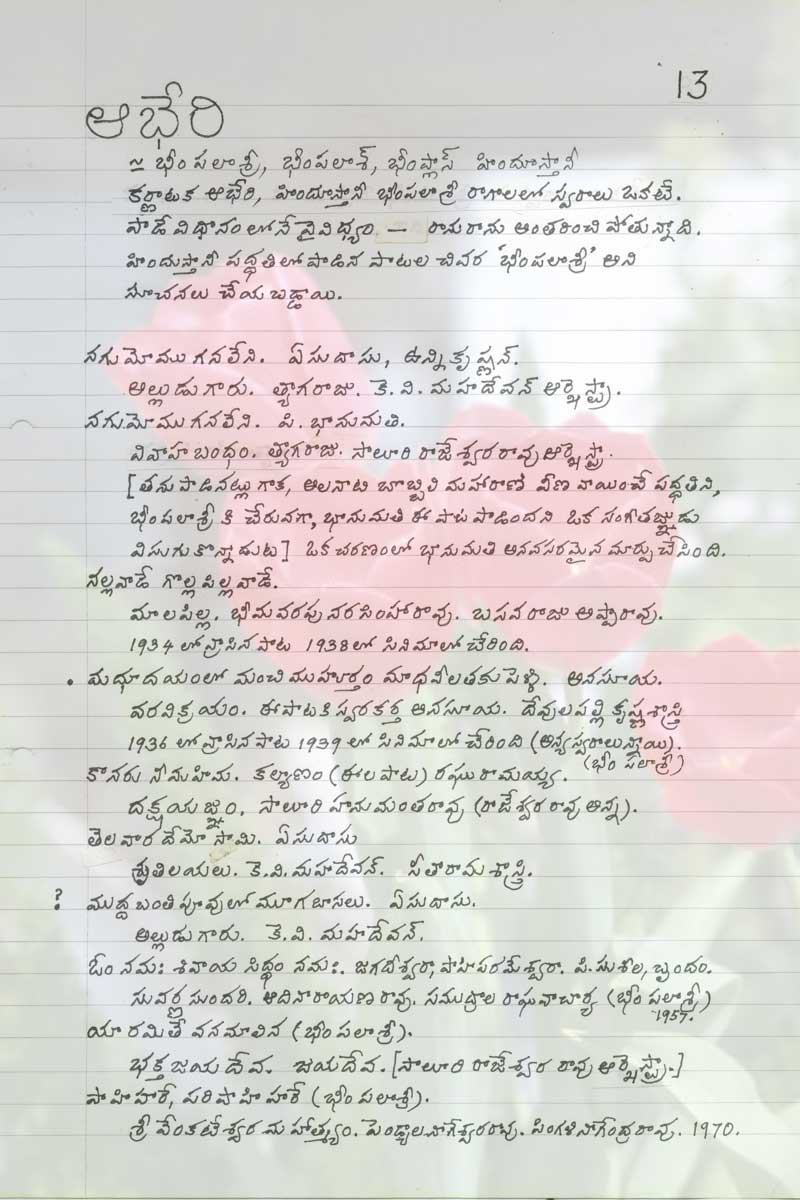 13
ఆభేరి
≃ భీంపలాశ్రీ, భీంపలాశ్, భీంప్లాస్ హిందూస్తానీ
కర్ణాటక ఆభేరి, హిందూస్తానీ భీంపలాశ్రీ రాగాలలో స్వరాలు ఒకటే.
పాడే విధానంలోనే వైవిధ్యం — రానురాను అంతరించి పోతున్నాది.
హిందుస్తానీ పద్ధతిలో పాడిన పాటల చివర 'భీంపలాశ్రీ' అని
సూచనలు చేయబడ్డాయి.
నగుమోము గనలేని. ఏసుదాసు, ఉన్నికృష్ణన్.
అల్లుడుగారు. త్యాగరాజు. కె. వి. మహదేవన్ ఆర్కెస్ట్రా.
నగుమోము గనలేని. పి. భానుమతి.
వివాహ బంధం. త్యాగరాజు. సాలూరి రాజేశ్వరరావు ఆర్కెస్ట్రా.
[తను పాడినట్లు గాక, అలనాటి బొబ్బిలి మహారాణి వీణ వాయించే పద్ధతిని,
భీంపలాశ్రీ కి చేరువగా, భానుమతి ఈ పాట పాడిందని ఒక సంగీతజ్ఞుడు
విసుగుకొన్నాడుట] ఒక చరణంలో భానుమతి అనవసరమైన మార్పు చేసింది.
నల్లవాడే గొల్లపిల్లవాడే.
మాలపిల్ల. భీమవరపు నరసింహారావు. బసవరాజు అప్పారావు.
1934 లో వ్రాసిన పాట 1938 లో సినిమాలో చేరింది.
• మధూదయంలో మంచి ముహూర్తం మాధవీలతకు పెళ్ళి. అనసూయ.
వరవిక్రయం. ఈ పాటకి స్వరకర్త అనసూయ. దేవులపల్లి కృష్ణశాస్త్రి
1936 లో వ్రాసిన పాట 1939 లో సినిమాలో చేరింది (అన్యస్వరాలున్నాయి).
(భీంపలాశ్రీ)
కానరు నీమహిమ. కల్యాణం (ఈలపాట) రఘురామయ్య.
దక్షయజ్ఞం. సాలూరి హనుమంతరావు (రాజేశ్వరరావు అన్న).
తెలవారదేమో సామి. ఏసుదాసు
శ్రుతిలయలు. కె. వి. మహదేవన్. సీతారామశాస్త్రి.
? ముద్దబంతి పూవులో మూగబాసలు. ఏసుదాసు.
అల్లుడుగారు. కె. వి. మహదేవన్.
ఓం నమః శివాయ సిద్ధం నమః. జగదీశ్వరా, పాహి పరమేశ్వరా. పి. సుశీల, బృందం.
సువర్ణసుందరి. ఆదినారాయణరావు. సముద్రాల రాఘవాచార్య (భీంపలాశ్రీ)
1957.
యా రమితే వనమాలిన (భీంపలాశ్రీ).
భక్త జయదేవ. జయదేవ. [సాలూరి రాజేశ్వరరావు ఆర్కెస్ట్రా.]
పాహి హరే, పరిపాహి హరే (భీంపలాశ్రీ).
శ్రీ వేంకటేశ్వర మహాత్మ్యం. పెండ్యాల నాగేశ్వరరావు. పింగళి నాగేంద్రరావు. 1970.